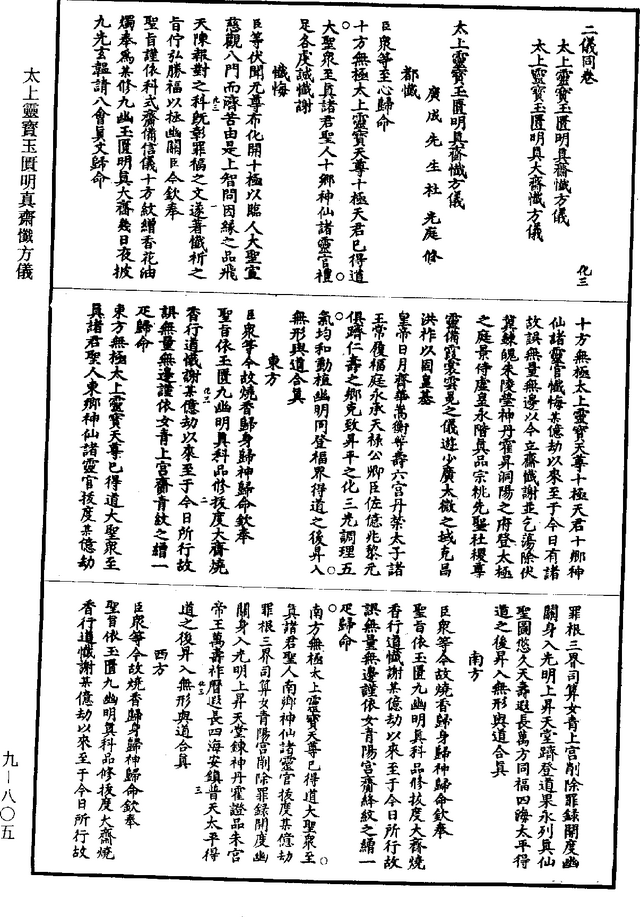 二儀同卷
太上靈寶玉匱明真齋懺方儀
太上靈寶玉匱明真大齋懺方儀
化三
太上靈寶玉匱明真齋懺方儀
廣成先生杜光庭修
都懺
臣衆等至心歸命
十方無極太上靈寶天尊十極天君已得道
大聖衆至真諸君聖人十鄉神仙諸靈官禮
足各虔誠懺謝
懺悔
臣等伏聞元尊布化開十極以臨人大聖宣
慈觀八門而濟苦由是上智問因緣之品飛
天陳報對之科既彰罪福之文遂著懺祈之
旨佇弘勝福以拯幽關臣今欽奉
聖旨謹依科式齋備信儀十方紋繒香花油
燭奉為某修九幽玉匱明真大齋幾日夜披
九光玄軀請八會真文歸命
十方無極太上靈寶天尊十極天君十鄉神
仙諸靈官懺悔某億劫以來至于今日有諸
故誤無量無邊以今立齋懺謝並乞蕩除伏
冀鍊魄朱陵瑩神丹霍昇洞陽之府登太極
之庭景侍虛皇永階真品宗祧先聖社稷尊
靈備霞裳雲冕之儀遊少廣太微之域克昌
洪祚以固皇基
皇帝日月齊華嵩衡等壽六宮丹榮太子諸
王常履福庭永承天祿公卿臣佐億兆黎元
俱躋仁壽之鄉克致昇平之化三光調理五
氣均和動植幽明同登福界得道之後昇入
無形與道合真
東方
臣衆等今故燒香歸身歸神歸命欽奉
聖旨依玉匱九幽明真科品修拔度大齋燒
香行道懺謝某億劫以來至于今日所行故
誤無量無邊謹依女青上宮齋青紋之繒一
疋歸命
東方無極太上靈寶天尊已得道大聖衆至
真諸君聖人東鄉神仙諸靈官拔度某億劫
罪根三界司算女青上宮削除罪錄開度幽
關身入光明上昇天堂躋登道果永列真仙
聖圖悠久天壽遐長萬方同福四海太平得
道之後昇入無形與道合真
南方
臣衆等今故燒香歸身歸神歸命欽奉
聖旨依玉匱九幽明真科品修拔度大齋燒
香行道懺謝某億劫以來至于今日所行故
誤無量無邊謹依女青陽宮齋絳紋之繒一
疋歸命
南方無極太上靈寶天尊已得道大聖衆至
真諸君聖人南鄉神仙諸靈官拔度某億劫
罪根三界司算女青陽宮削除罪錄開度幽
關身入光明上昇天堂鍊神丹霍證品朱宮
帝王萬壽祚曆遐長四海安鎮普天太平得
道之後昇入無形與道合真
西方
臣衆等今故燒香歸身歸神歸命欽奉
聖旨依玉匱九幽明真科品修拔度大齋燒
香行道懺謝某億劫以來至于今日所行故
太上靈寶玉匱明真齋懺方儀
九—八〇五